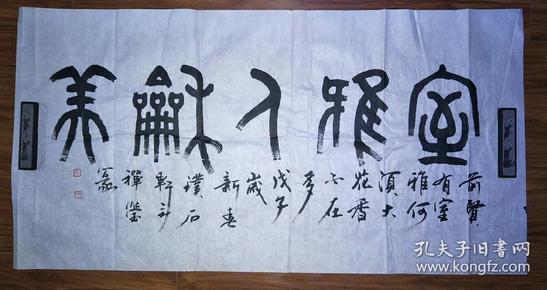 室雅人龢美
前賢
有室
雅何
須大
花香
不在
多
戊子
歲
新春
璞石
軒主
禪瑩
孔夫子旧书网
www.kongfz.com